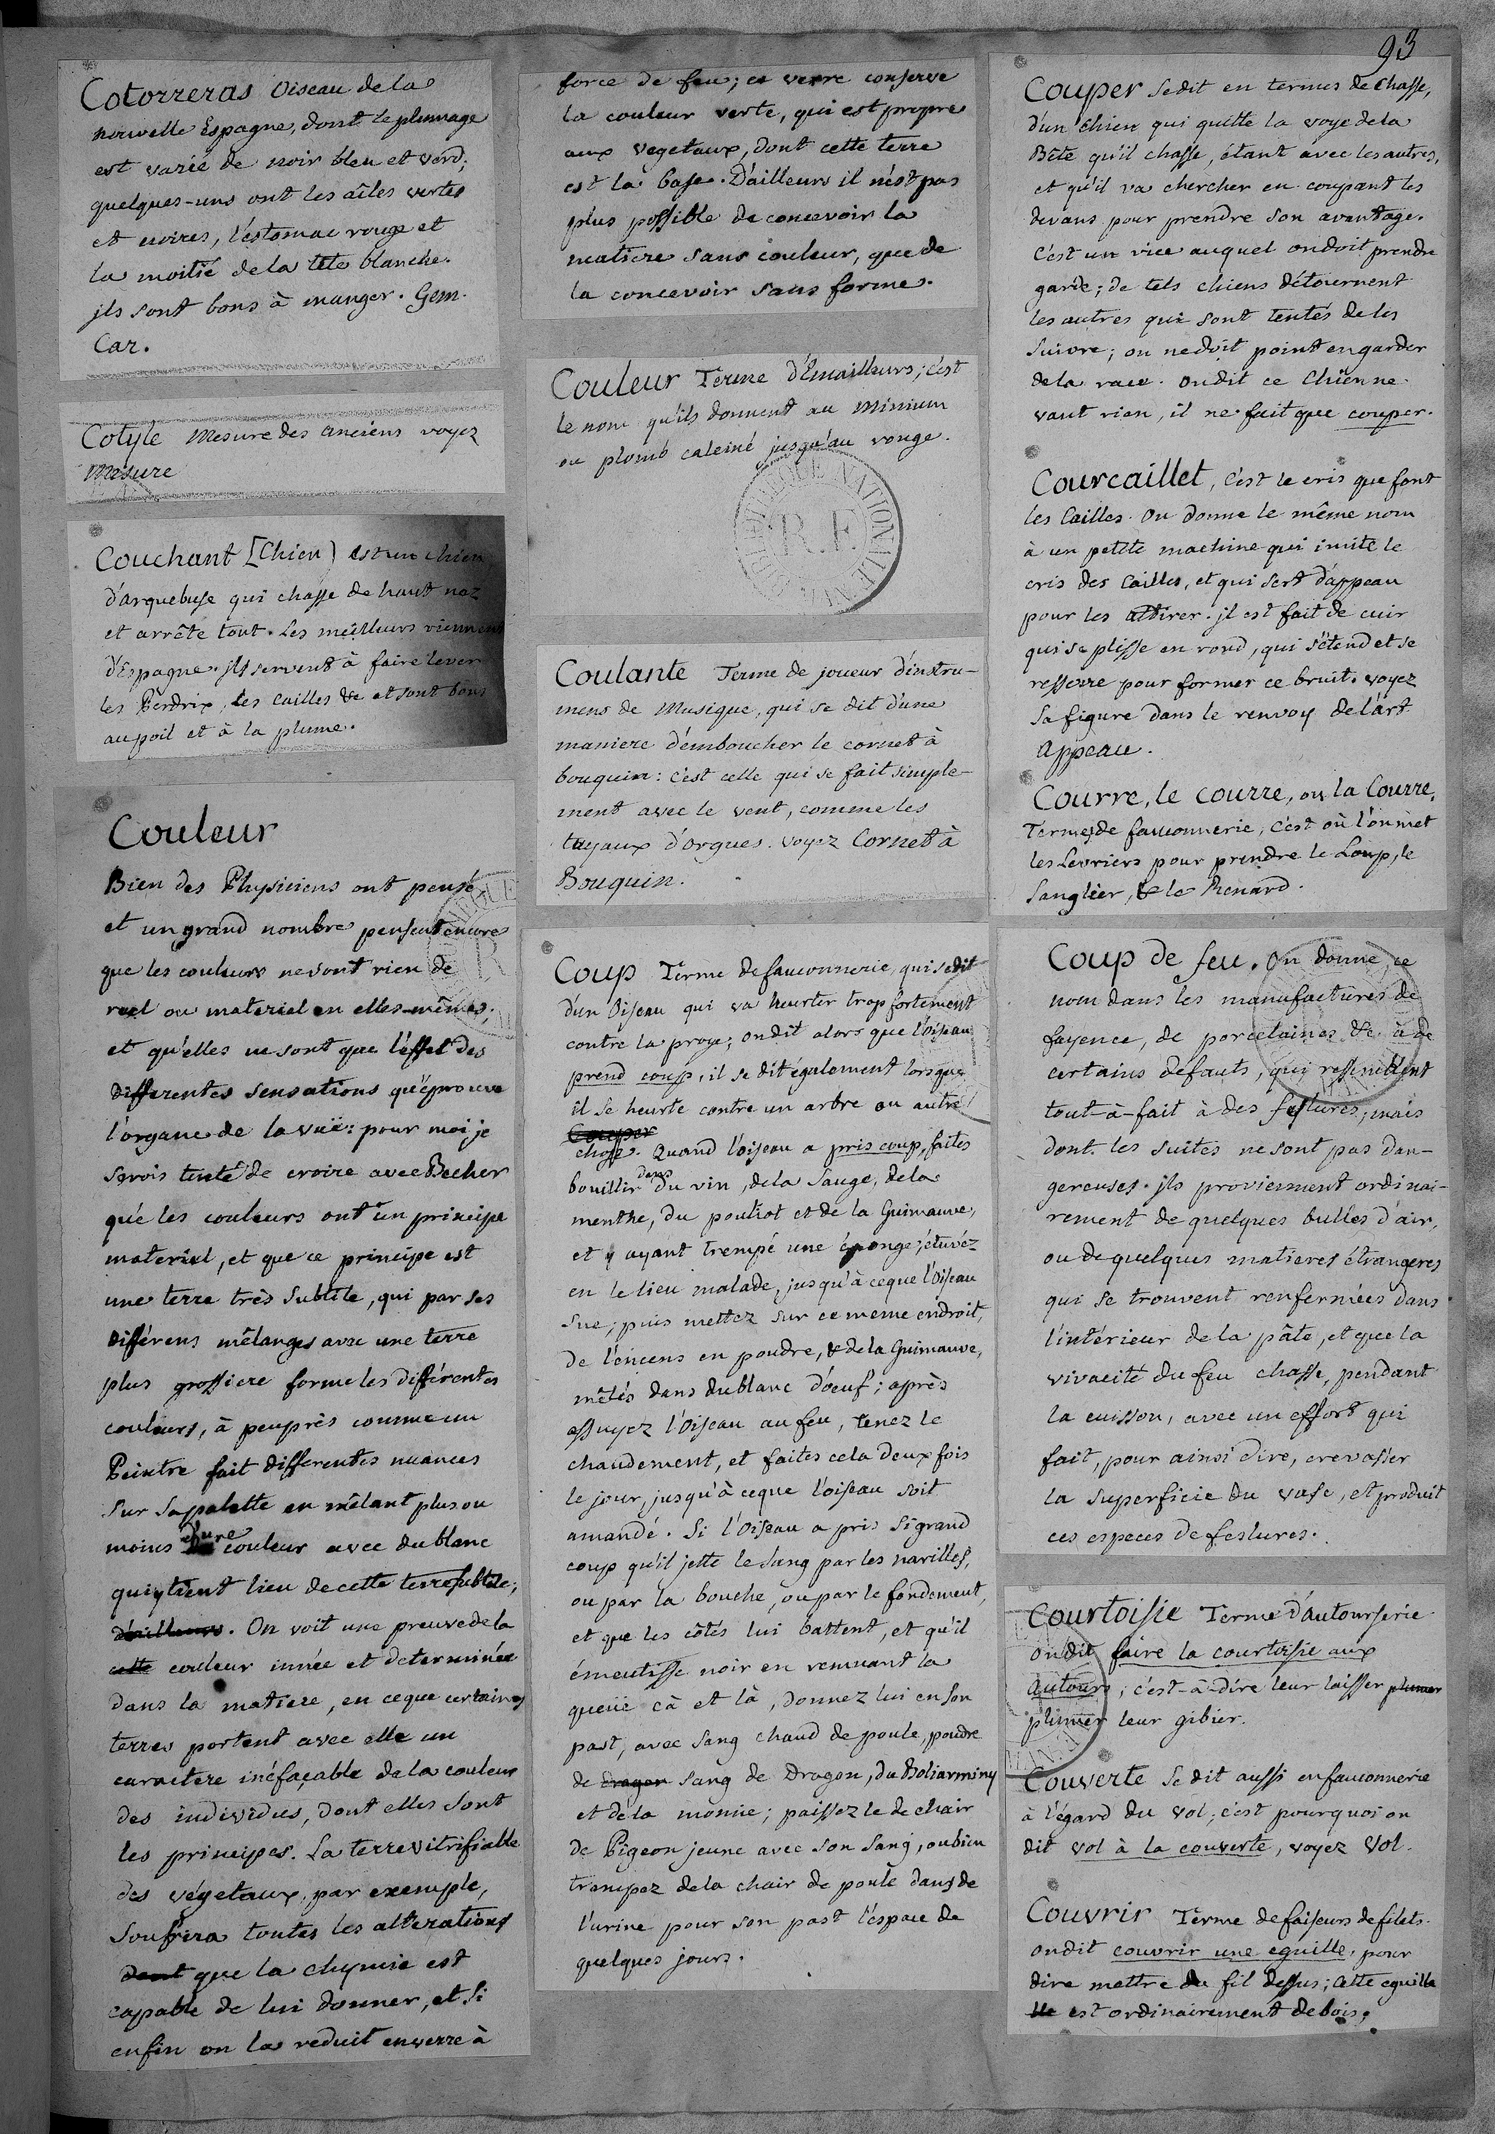 93
Cotorreras Oiseau de la
nouvelle Espagne, dont le plumage
est varié de noir bleu et verd;
quelques-uns ont les aîles vertes
et noires, l'éstomac rouge et
la moitié de la tête blanche.
jls sont bons à manger. Gem.
Car.
Cotyle Mesure des anciens voyez
Mesure
Couchant [Chien) est un chien
d'arquebuse qui chasse de haut nez
et arrête tout. Les meilleurs viennent
d'Espagne. jls servent à faire lever
les Perdrix, les cailles &c et sont bons
au poil et à la plume.
Couleur
Bien des Physiciens ont pensé
et un grand nombre pensent encore
que les couleurs ne sont rien de
réel ou materiel en elles-mêmes;
et qu'elles ne sont que l'éffet des
differentes sensations qu'éprouve
l'organe de la vuë: pour moi je
serois tenté de croire avec Becher
que les couleurs ont un principe
materiel, et que ce principe est
une terre très subtile, qui par ses
différens mêlanges avec une terre
plus grossiere forme les différentes
couleurs, à peuprès comme un
Peintre fait differentes nuances
sur sa palette en mêlant plus ou
moins d'une couleur avec du blanc
qui tient lieu de cette terre subtile;
d'ailleurs. On voit une preuve de la
cette couleur innée et determinée
dans la matiere, en ceque certaines
terres portent avec elle un
caractere inéfaçable de la couleur
des individus, dont elles sont
les principes. La terre vitrifiable
des végetaux, par exemple,
soufrira toutes les alterations
dont que la chymie est
capable de lui donner, et si
enfin on la reduit en verre à
force de feu; ce verre conserve
la couleur verte, qui est propre
aux vegetaux, dont cette terre
est la base. D'ailleurs il n'est pas
plus possible de concevoir la
matiere sans couleur, que de
la concevoir sans forme.
Couleur Terme d'Emailleurs; c'est
le nom qu'ils donnent au Minium
ou plomb calciné jusqu'au rouge.
BIBLIOTHEQUE NATIONALE
R.F.
MAN.
Coulante Terme de joueur d'instru-
mens de Musique, qui se dit d'une
maniere d'emboucher le cornet à
bouquin: c'est celle qui se fait simple-
ment avec le vent, comme les
tuyaux d'orgues. voyez Cornet à
Bouquin.
Coup Terme de fauconnerie, qui se dit
d'un Oiseau qui va heurter trop fortement
contre la proye; on dit alors que l'oiseau
prend coup, il se dit également lorsque
il se heurte contre un arbre ou autre
Couper
chose. Quand l'oiseau a pris coup, faites
bouillir dans du vin, de la Sauge, de la
menthe, du pouliot et de la Guimauve,
et y ayant trempé une éponge; étuvéz
en le lieu malade, jusqu'à ceque l'Oiseau
sue; puis mettez sur ce meme endroit,
de l'encens en poudre, & de la Guimauve,
mêlés dans du blanc d'oeuf; après
essuyez l'Oiseau au feu, tenez le
chaudement, et faites cela deux fois
le jour, jusqu'à ceque l'oiseau soit
amandé. Si l'Oiseau a pris si grand
coup qu'il jette le sang par les narilles,
ou par la bouche, ou par le fondement,
et que les côtés lui battent, et qu'il
émeutisse noir en remuant la
queüe cà et là, donnez lui en son
past, avec sang chaud de poule, poudre
de dragon sang de Dragon, du Boliarminy
et de la momie; paissez le de chair
de Pigeon jeune avec son sang, ou bien
trempez de la chair de poule dans de
l'urine pour son past l'espace de
quelques jours.
Couper se dit en termes de Chasse,
d'un chien qui quitte la voye de la
Bête qu'il chasse, étant avec les autres,
et qu'il va chercher en coupant les
devans pour prendre son avantage.
C'est un vice auquel on doit prendre
garde; de tels chiens détournent
les autres qui sont tentés de les
suivre; on ne doit point en garder
de la race. on dit ce Chien ne
vaut rien, il ne fait que couper.
Courcaillet, c'est le cris que font
les Cailles. On donne le même nom
à un petite machine qui imite le
cris des Cailles, et qui sert d'appeau
pour les attirer. jl est fait de cuir
qui se plisse en rond, qui s'étend et se
resserre pour former ce bruit. voyez
sa figure dans le renvoy de l'art.
Appeau.
Courre, le courre, ou la Courre,
Termes de fauconnerie, c'est où l'on met
les Levriers pour prendre le Loup, le
Sanglier, & le Renard.
Coup de feu. On donne ce
nom dans les manufactures de
fayence, de porcelaines &c à de
certains defauts, qui ressemblent
tout-à-fait à des feslures; mais
dont les suites ne sont pas dan-
gereuses. jls proviennent ordinai-
rement de quelques bulles d'air,
ou de quelques matieres étrangeres
qui se trouvent renfermées dans
l'intérieur de la pâte, et que la
vivacité du feu chasse, pendant
la cuisson, avec un effort qui
fait, pour ainsi dire, crevasser
la superficie du vase, et produit
ces especes de feslures.
Courtoisie Terme d'Autourserie
on dit faire la courtoisie aux
autours; c'est-à-dire leur laisser plumer
plumer leur gibier.
Couverte se dit aussi en fauconnerie
à l'égard du vol; c'est pourquoi on
dit vol à la couverte, voyez vol.
Couvrir Terme de faiseurs de filets.
on dit couvrir une eguille, pour
dire mettre du fil dessus; cette eguille
est ordinairement de bois.